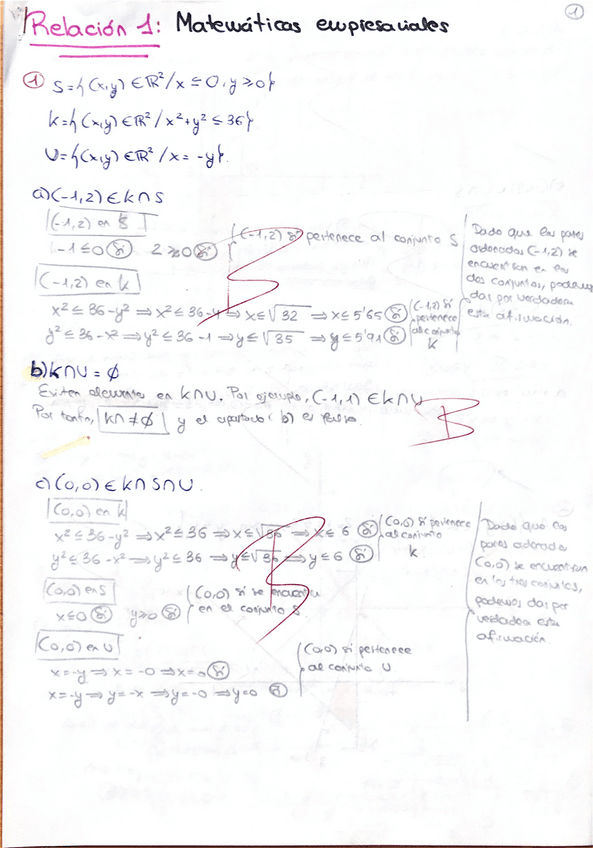 1
Relación 1: Matemáticas empresariales
① S={(x,y) ∈ ℝ²/x ≤ 0, y ≥ 0}
K={(x,y) ∈ ℝ²/x²+y² ≤ 36}
U={(x,y) ∈ ℝ²/x = -y}.
a) (-1,2) ∈ K∩S
(-1,2) en S
-1 ≤ 0 Sí 2 ≥ 0 Sí
(-1,2) sí pertenece al conjunto S
(-1,2) en K
x² ≤ 36-y² ⇒ x² ≤ 36-4 ⇒ x ≤ √32 ⇒ x ≤ 5'65 Sí
y² ≤ 36-x² ⇒ y² ≤ 36-1 ⇒ y ≤ √35 ⇒ y ≤ 5'91 Sí
(-1,2) sí
pertenece
al conjunto
K
Dado que los pares
ordenados (-1,2) se
encuentran en los
dos conjuntos, podemos
dar por verdadera
esta afirmación.
B
b) K∩U = ∅
Existen elementos en K∩U. Por ejemplo, (-1,1) ∈ K∩U
Por tanto, K∩ ≠ ∅ y el apartado b) es falso.
B
c) (0,0) ∈ K∩S∩U.
(0,0) en K
x² ≤ 36-y² ⇒ x² ≤ 36 ⇒ x ≤ √36 ⇒ x ≤ 6 Sí
y² ≤ 36-x² ⇒ y² ≤ 36 ⇒ y ≤ √36 ⇒ y ≤ 6 Sí
(0,0) sí pertenece
al conjunto
K
(0,0) en S
x ≤ 0 Sí y ≥ 0 Sí
(0,0) sí se encuentra
en el conjunto S.
(0,0) en U
x = -y ⇒ x = -0 ⇒ x = 0 Sí
x = -y ⇒ y = -x ⇒ y = -0 ⇒ y = 0 Sí
(0,0) sí pertenece
al conjunto U
Dado que los
pares ordenados
(0,0) se encuentran
en los tres conjuntos,
podemos dar por
verdadera esta
afirmación.
B